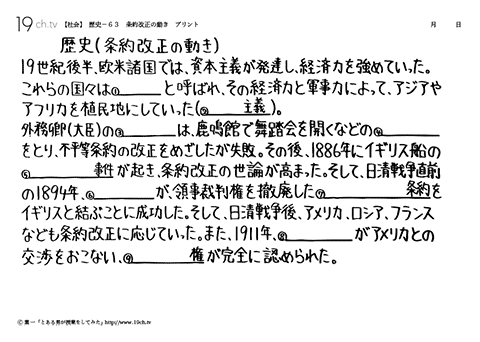 19ch.tv 【社会】 歴史－６３ 条約改正の動き プリント 月 日
歴史(条約改正の動き)
19世紀後半、欧米諸国では、資本主義が発達し、経済力を強めていった。
これらの国々は①______と呼ばれ、その経済力と軍事力によって、アジアや
アフリカを植民地にしていった(②____主義)。
外務卿(大臣)の③______は、鹿鳴館で舞踏会を開くなどの④______
をとり、不平等条約の改正をめざしたが失敗。その後、1886年にイギリス船の
⑤________事件が起き、条約改正の世論が高まった。そして、日清戦争直前
の1894年、⑥______が、領事裁判権を撤廃した⑦__________条約を
イギリスと結ぶことに成功した。そして、日清戦争後、アメリカ、ロシア、フランス
なども条約改正に応じていった。また、1911年、⑧________がアメリカとの
交渉をおこない、⑨________権が完全に認められた。
© 葉一「とある男が授業をしてみた」http://www.19ch.tv